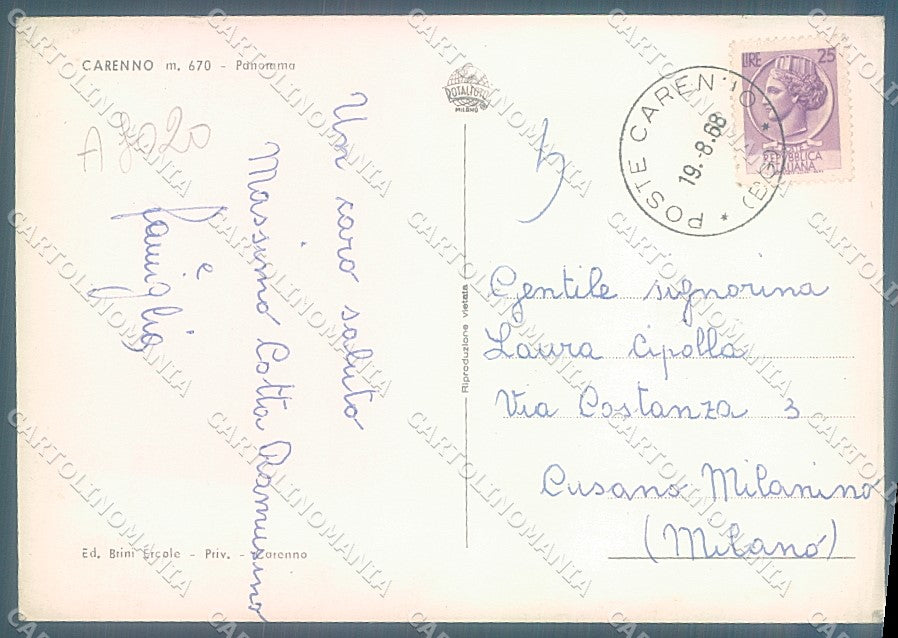 CARENNO m. 670 - Panorama
A 9020
Un caro saluto
Massimo Cotta Ramusino
e
famiglia
Ed. Brini Ercole - Priv. - Carenno
MILANO
Riproduzione vietata
POSTE CARENNO * (BG) *
19.-8.68
LIRE 25
POSTE
REPVBBLICA
ITALIANA
Gentile signorina
Laura Cipolla
Via Costanza 3
Cusano Milanino
(Milano)
CARTOLINOMANIA